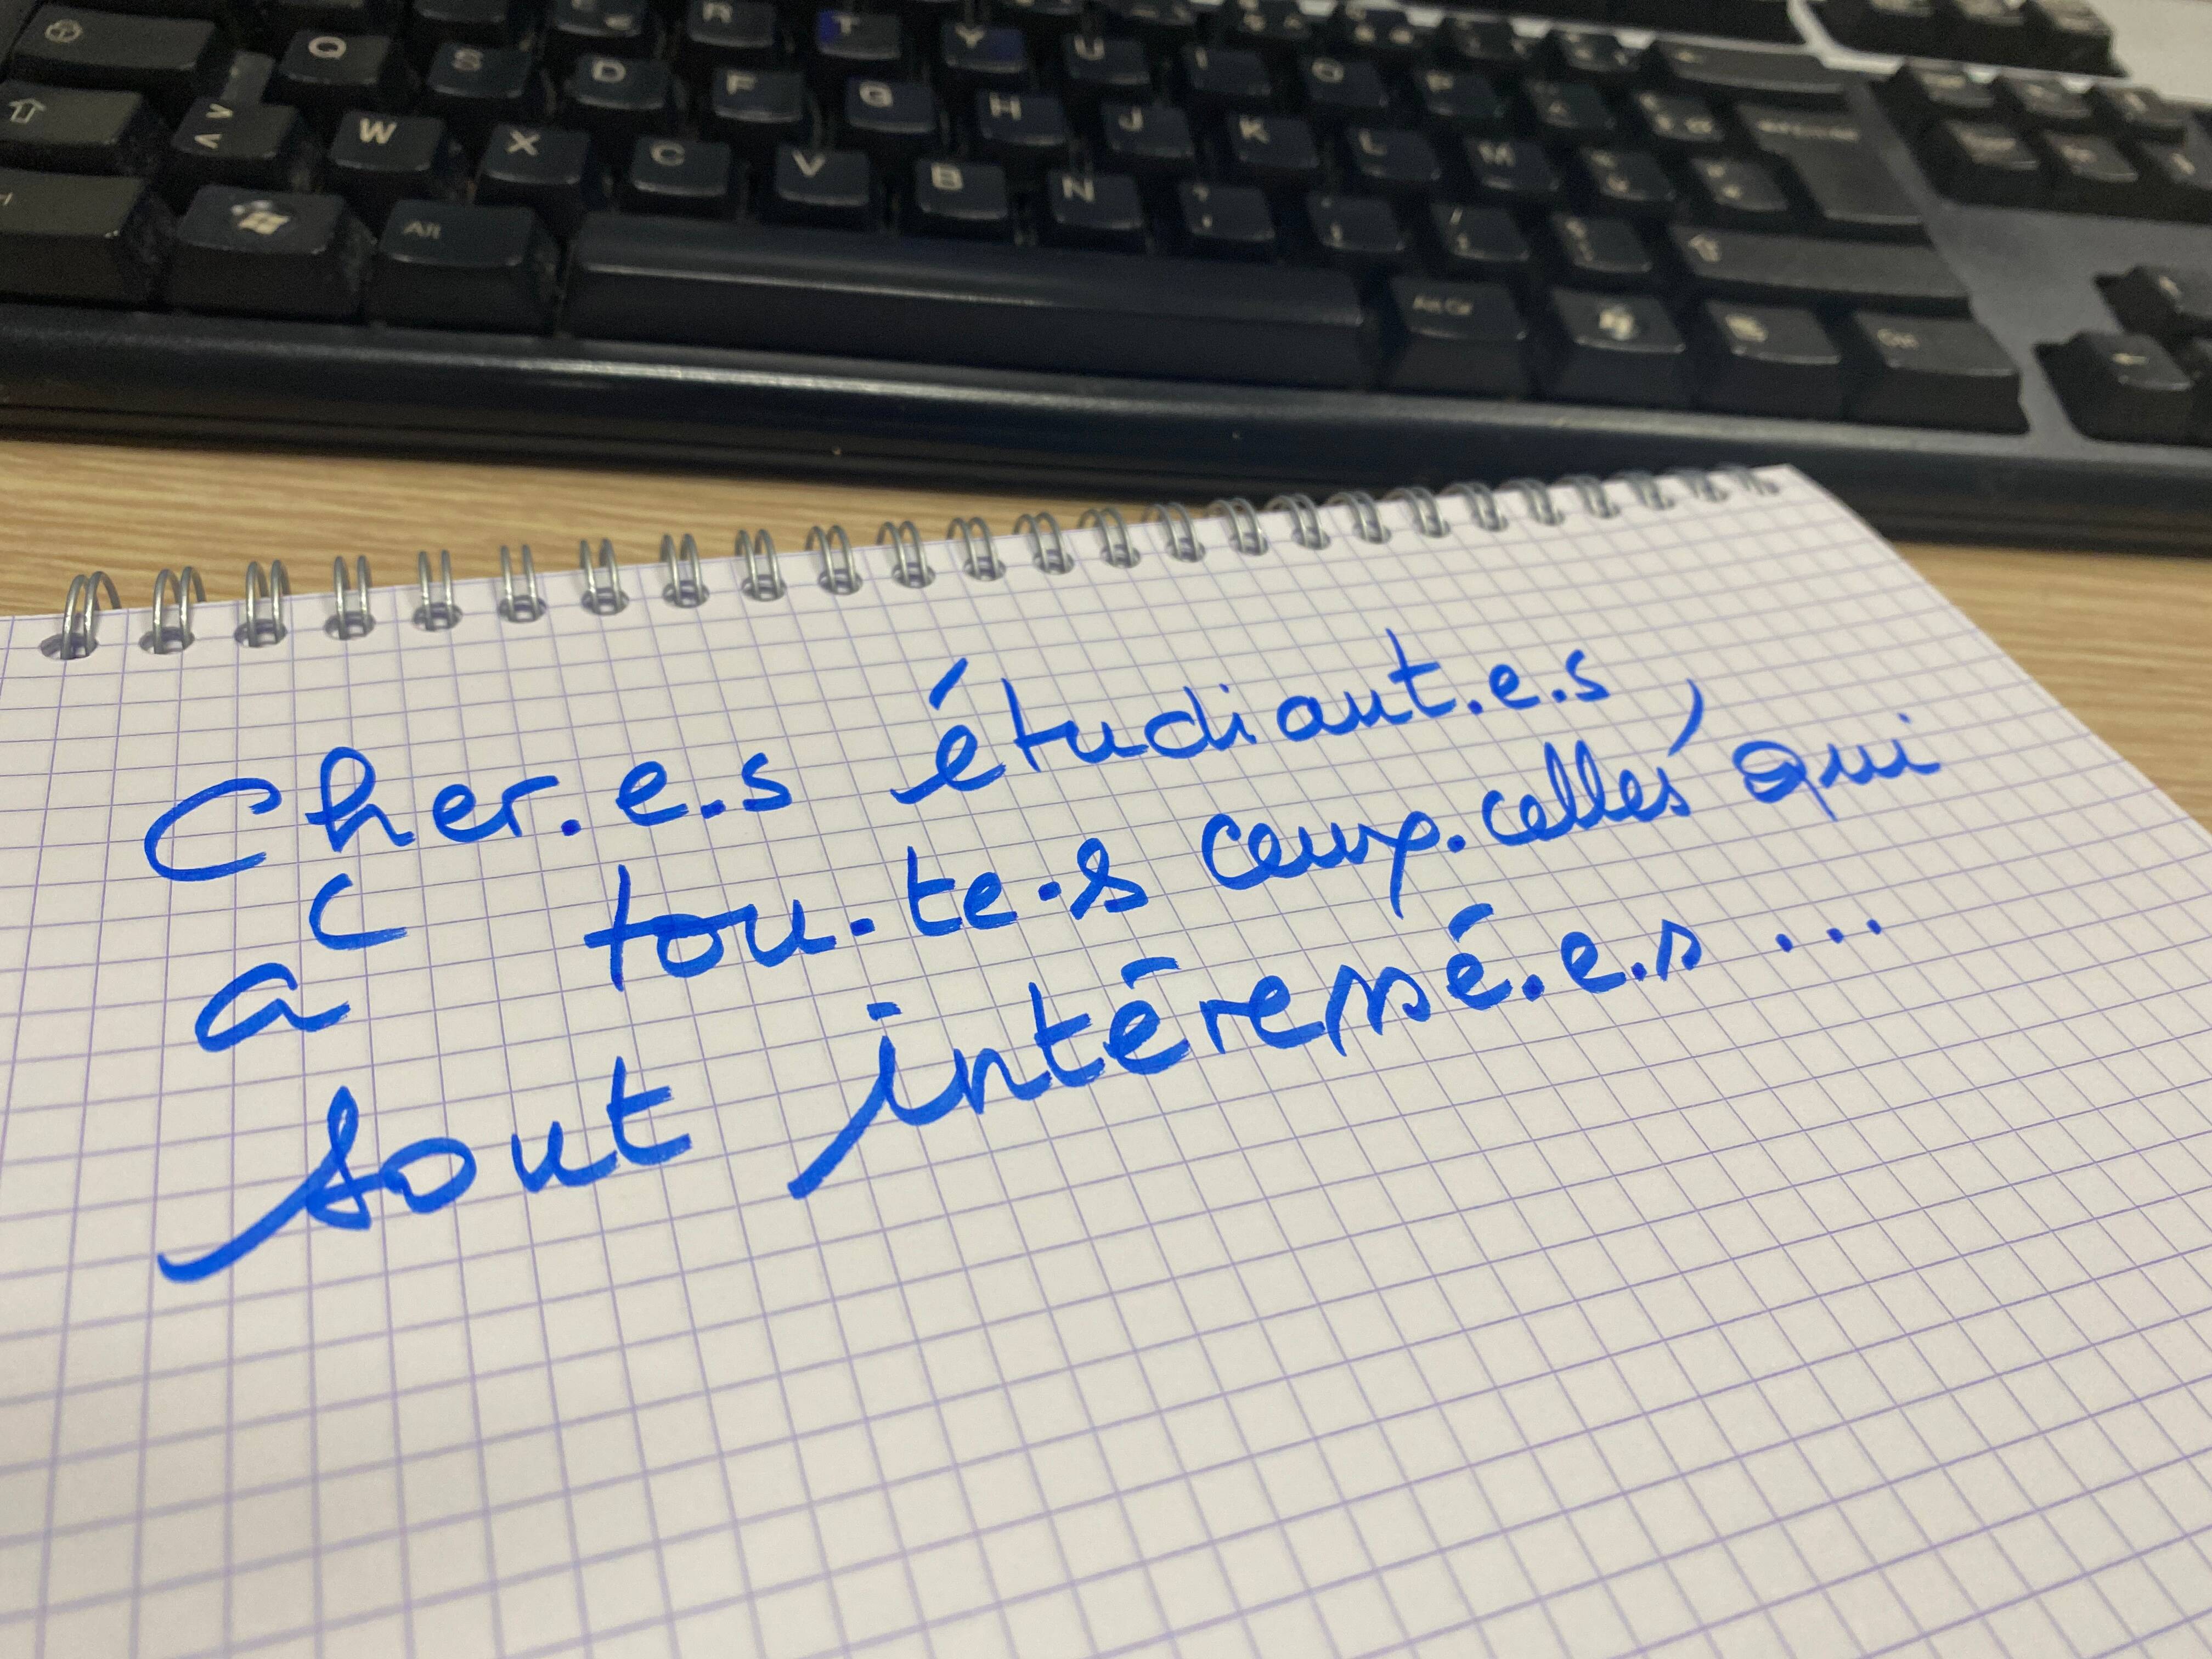 E R T Y U I O P
Q S D F G H J K L M
> < W X C V B N
Alt Alt Gr Ctrl
Cher.e.s étudiant.e.s,
à tou.te.s ceux.celles qui
sont intéressé.e.s ...